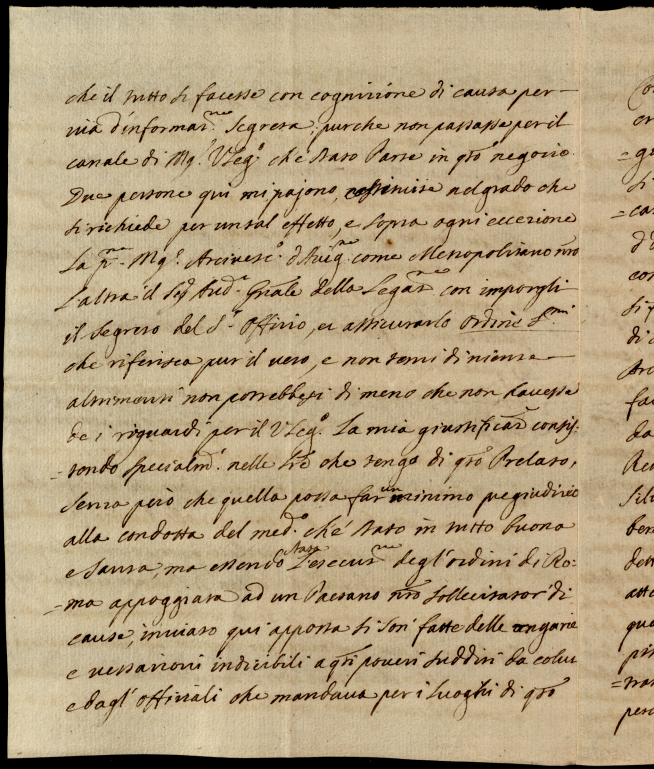 che il tutto si facesse con cognizione di causa per
via d'informaz.ne Segreta; purche non passasse per il
canale di Mg.r VLeg.o che è stato Parte in q̃ro negozio.
Due persone qui mi pajono, costituite nel grado che
si richiede per un tal effetto, e sopra ogni eccezione
La p.ma Mg.r Arcivesc.o d'Avig.ne come Metropolitano nr̃o
l'altra il Sig. Aud.r Gñale della Legaz.ne con imporgli
il segreto del S.o Offizio, et assicurarlo ordine S.mi
che riferisca pur il vero, e non temi di niente
altrimenti non potrebbesi di meno che non havesse
de i riguardi per il VLeg.o La mia giustificaz.n consis-
-tendo specialm.te nelle Lr̃e che tengo di q̃ro Prelato,
senza però che quella possa far un minimo pregiudizio
alla condotta del med.o ch'è stato in tutto buona
e santa, ma essendo stata l'esecuz.ne degl'ordini di Ro:
-ma appoggiata ad un Paesano nr̃o sollecitator di
cause, inviato qui apposta si son fatte delle angarie
e vessazioni indicibili a q̃ri poveri sudditi da colui
e dagl'offiziali che mandava per i luoghi di q̃ro